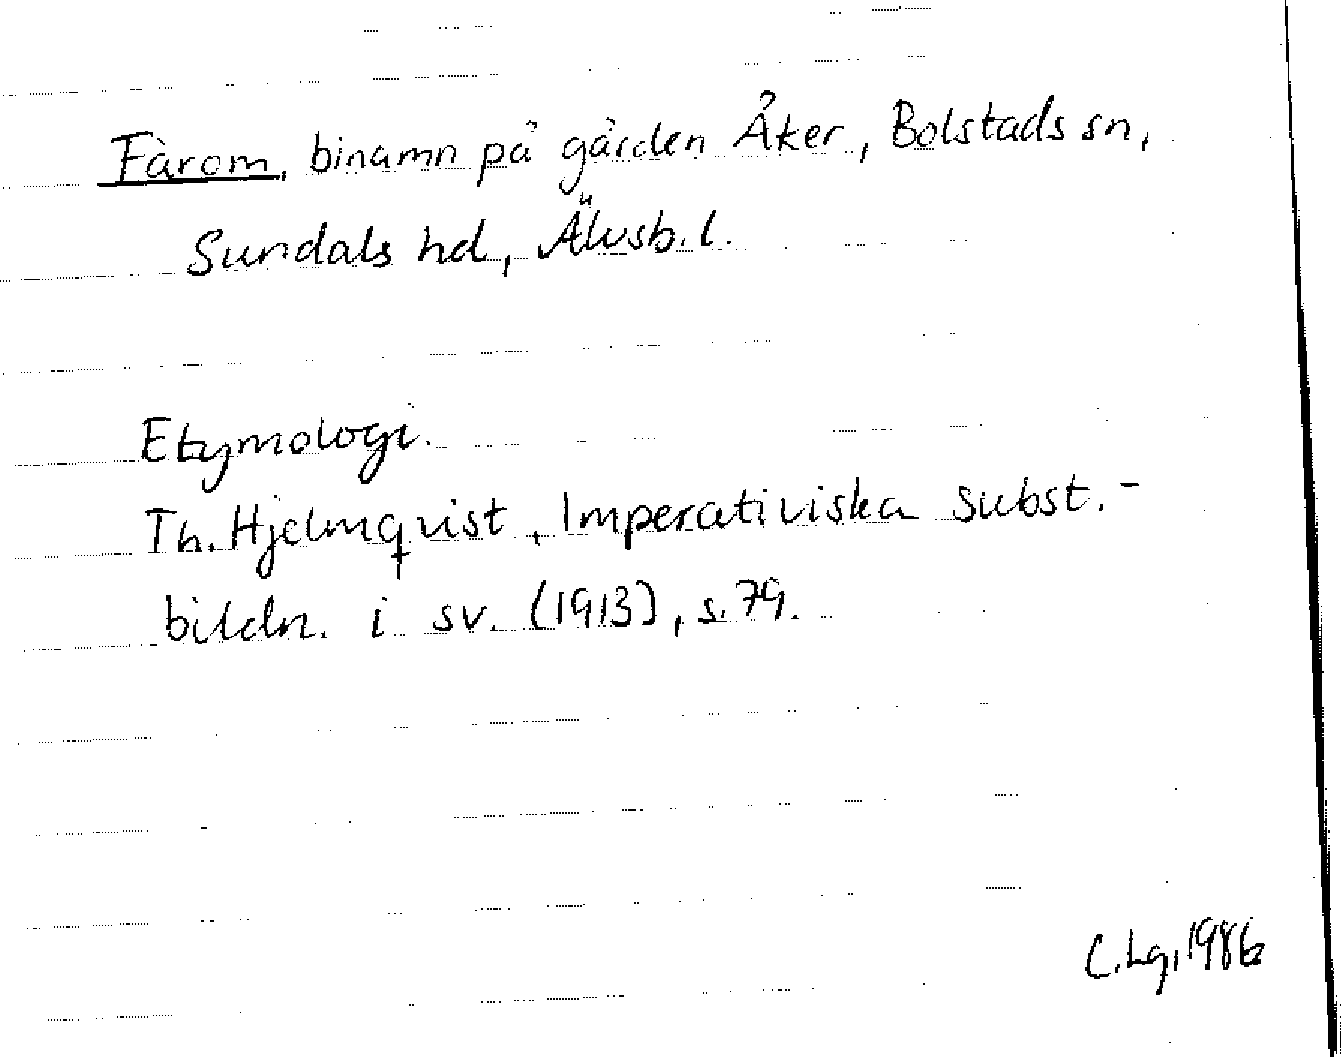 Fàrom, binamn på gården Åker, Bolstads sn,
Sundals hd, Älvsb. l.
Etymologi.
Th. Hjelmqvist, Imperativiska subst.-
bildn. i sv. (1913), s. 79.
C. Lg, 1986